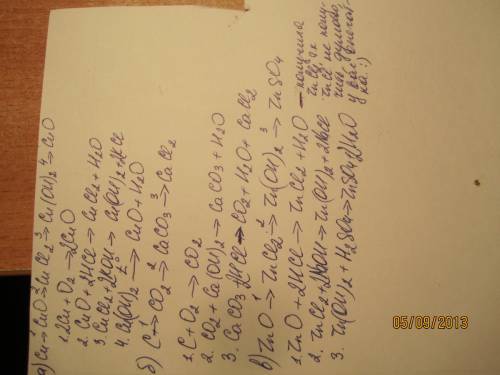 а) Cu →¹ CuO →² CuCl₂ →³ Cu(OH)₂ →⁴ CuO
1. 2Cu + O₂ → 2CuO
2. CuO + 2HCl → CuCl₂ + H₂O
3. CuCl₂ + 2KOH → Cu(OH)₂ + 2KCl
4. Cu(OH)₂ →t° CuO + H₂O
б) C →¹ CO₂ →² CaCO₃ →³ CaCl₂
1. C + O₂ → CO₂
2. CO₂ + Ca(OH)₂ → CaCO₃ + H₂O
3. CaCO₃ + 2HCl → CO₂ + H₂O + CaCl₂
в) ZnO →¹ ZnCl₂ →² Zn(OH)₂ →³ ZnSO₄
1. ZnO + 2HCl → ZnCl₂ + H₂O — получила
ZnCl₂, т.к
ZnCl не полу-
чим, думаю,
у вас
ка :)
2. ZnCl₂ + 2KOH → Zn(OH)₂ + 2KCl
3. Zn(OH)₂ + H₂SO₄ → ZnSO₄ + 2H₂O
05/09/2013